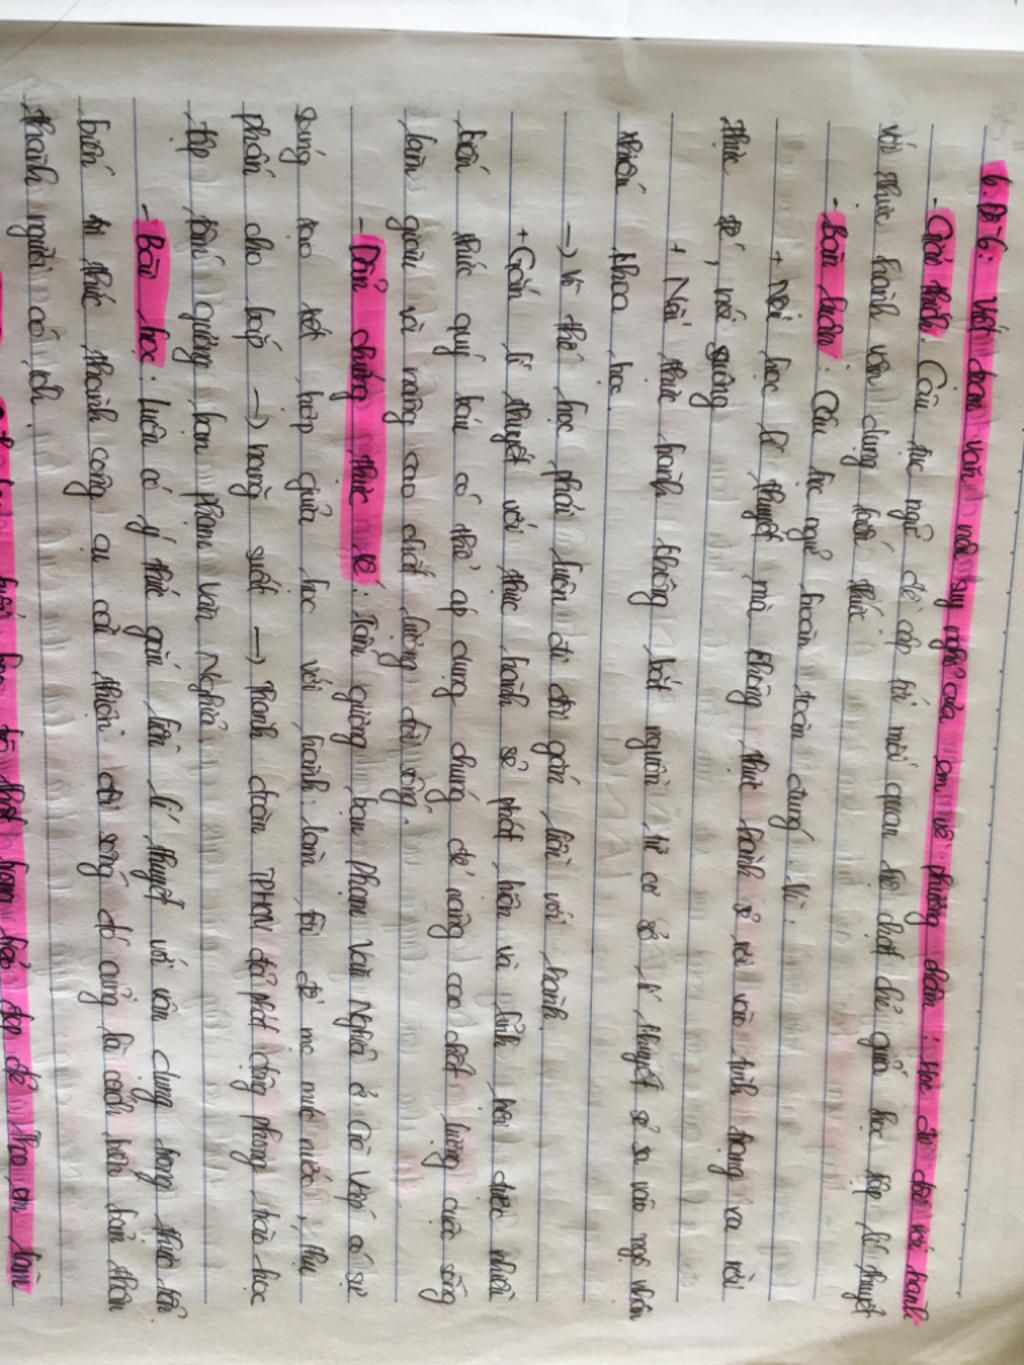 6. Đề 6: Viết đoạn văn nêu suy nghĩ của em về phương châm: Học đi đôi với hành
- Giải thích: Câu tục ngữ đề cập tới mối quan hệ chặt chẽ giữa học tập lí thuyết
với thực hành vận dụng kiến thức.
- Bàn luận: Câu tục ngữ hoàn toàn đúng. Vì:
+ Nếu học lí thuyết mà không thực hành sẽ rơi vào tình trạng xa rời
thực tế, nói suông
+ Nếu thực hành không bắt nguồn từ cơ sở lí thuyết sẽ sa vào ngộ nhận
thiếu khoa học.
→ Vì thế học phải luôn đi đôi gắn liền với hành.
+ Gắn lí thuyết với thực hành sẽ phát hiện và lĩnh hội được nhiều
kiến thức quý báu có thể áp dụng chúng để nâng cao chất lượng cuộc sống
làm giàu và nâng cao chất lượng đời sống.
- Dẫn chứng thực tế: Tấm gương bạn Phạm Văn Nghĩa ở Gò Vấp có sự
sáng tạo kết hợp giữa học với hành: làm tời để mẹ múc nước, thụ
phấn cho bắp → năng suất → Thành đoàn TPHCM đã phát động phong trào học
tập tấm gương bạn Phạm Văn Nghĩa
- Bài học: Luôn có ý thức gắn liền lí thuyết với vận dụng trong thực tế.
biến tri thức thành công cụ cải thiện đời sống đó cũng là cách biến bản thân
thành người có ích.